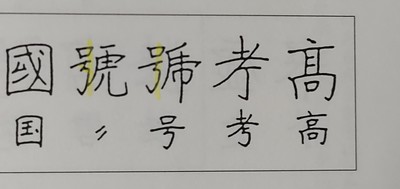 國號號考髙
国〃号考高